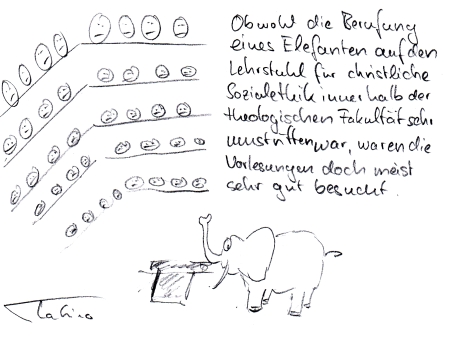 Obwohl die Berufung
eines Elefanten auf den
Lehrstuhl für christliche
Sozialethik innerhalb der
theologischen Fakultät sehr
umstritten war, waren die
Vorlesungen doch meist
sehr gut besucht.